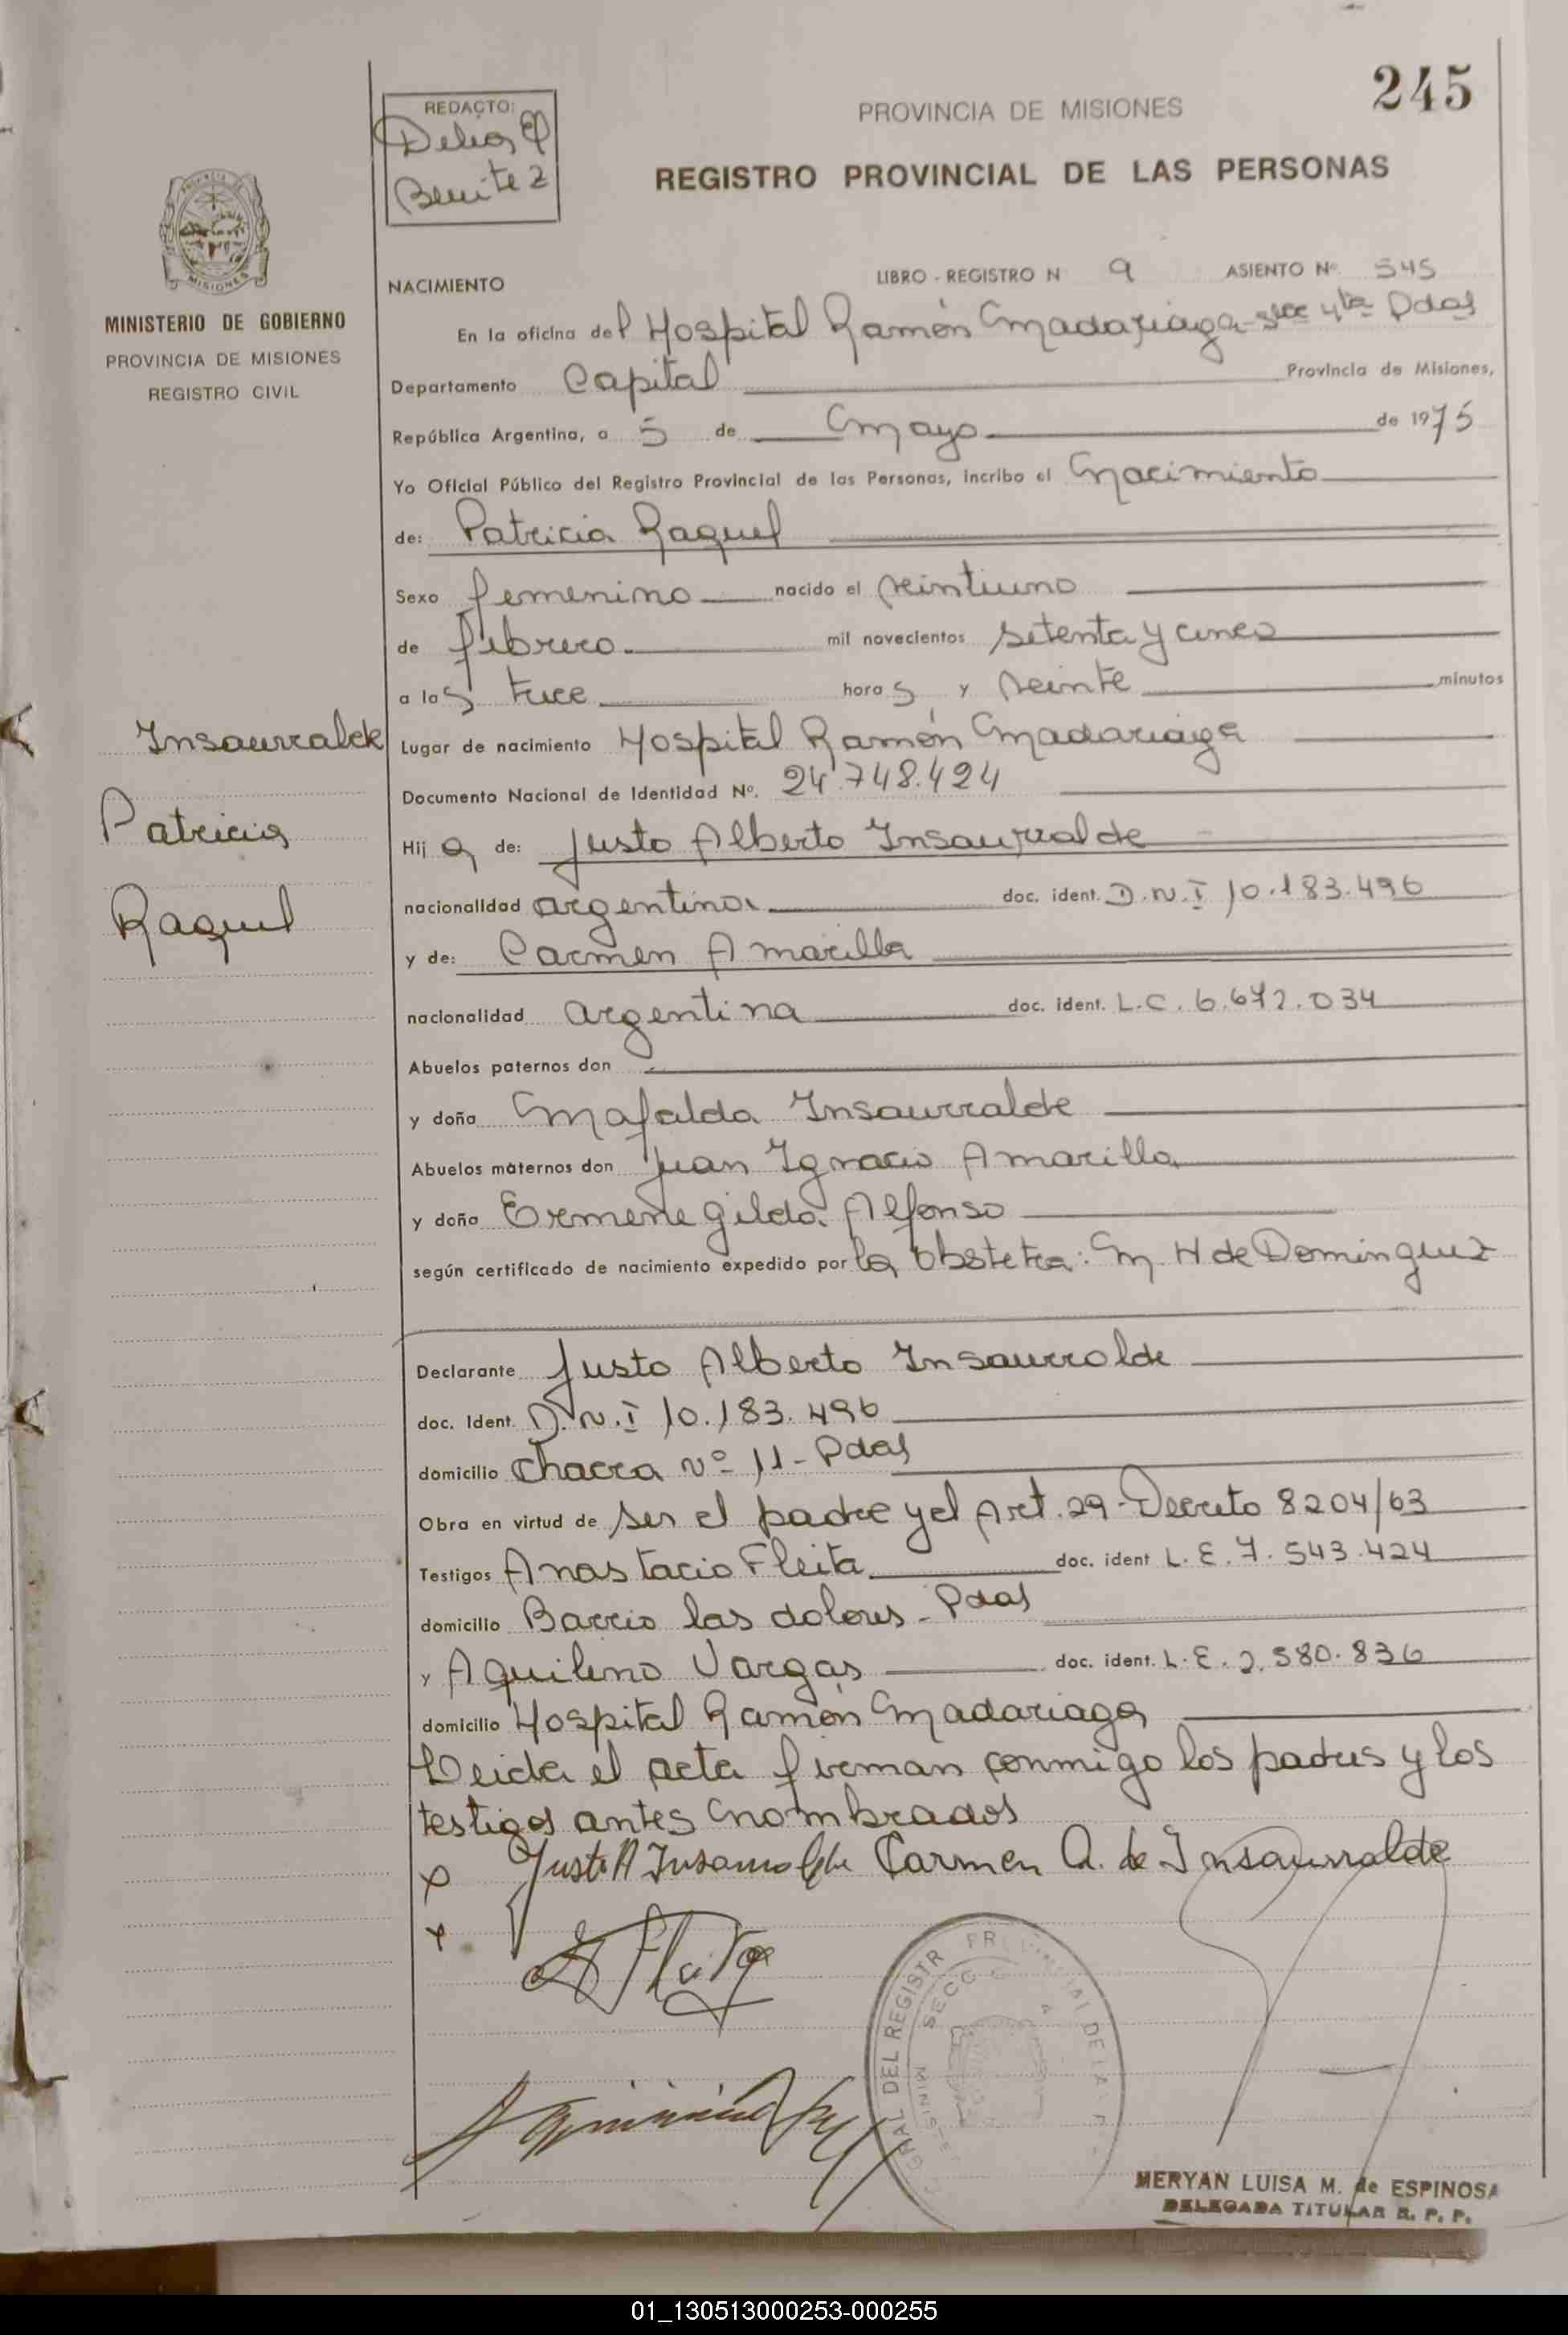 245
REDACTO:
Benitez
PROVINCIA DE MISIONES
REGISTRO PROVINCIAL DE LAS PERSONAS
MISIONES
MINISTERIO DE GOBIERNO
PROVINCIA DE MISIONES
REGISTRO CIVIL
Insaurralde
Patricia
Raquel
NACIMIENTO LIBRO - REGISTRO N 9 ASIENTO Nº 545
En la oficina del Hospital Ramón Madariaga - 4ta Pdas
Departamento Capital Provincia de Misiones,
República Argentina, a 5 de Mayo de 1975
Yo Oficial Público del Registro Provincial de las Personas, incribo el Nacimiento
de: Patricia Raquel
Sexo femenino nacido el veintiuno
de febrero mil novecientos setenta y cinco
a las trece horas y veinte minutos
Lugar de nacimiento Hospital Ramón Madariaga
Documento Nacional de Identidad Nº. 24.748.424
Hij a de: Justo Alberto Insaurralde
nacionalidad argentina doc. ident. D.N.I 10.183.496
y de: Carmen Amarilla
nacionalidad argentina doc. ident. L.C. 6.672.034
Abuelos paternos don
y doña Mafalda Insaurralde
Abuelos maternos don Juan Ignacio Amarilla
y doña Ermenegilda Alfonso
según certificado de nacimiento expedido por la Obstetra: M. H de Dominguez
Declarante Justo Alberto Insaurralde
doc. Ident. D.N.I 10.183.496
domicilio Chacra Nº 11 - Pdas
Obra en virtud de ser el padre y el Art. 29 - Decreto 8204/63
Testigos Anastacio Fleita doc. ident L.E. 7.543.424
domicilio Barrio las dolores - Pdas
y Aquilino Vargas doc. ident. L.E. 2.580.836
domicilio Hospital Ramón Madariaga
Leida el acta firman conmigo los padres y los
testigos antes nombrados
Justo A Insaurralde Carmen A. de Insaurralde
GRAL DEL REGISTR
SECC
MERYAN LUISA M. de ESPINOSA
DELEGADA TITULAR R. P. P.
01_130513000253-000255